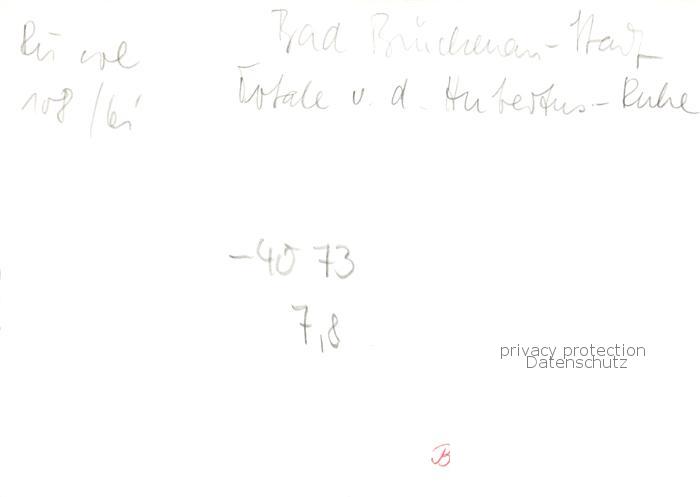 Bad Brückenau-Stadt
Totale v. d. Hubertus-Ruhe
108/
-40 73
7,8
privacy protection
Datenschutz
B